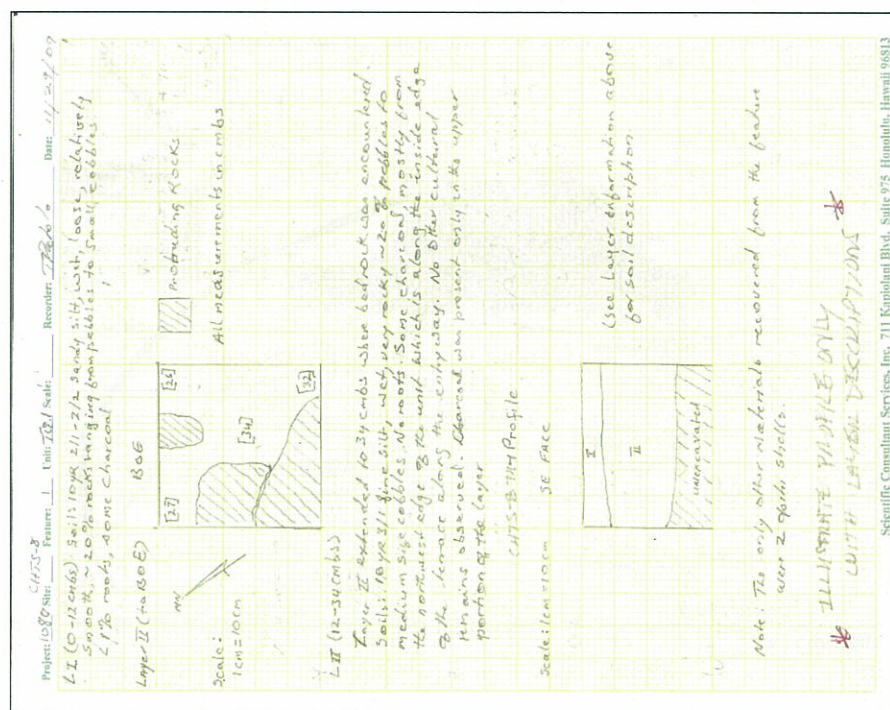 Project: 1080 Site: CHTS-8 Feature: 1 Unit: TU.1 Scale: Recorder: Date: 11/29/09
LI (0-12 cmbs) Soils 10YR 2/1-2/2 sandy silt, wet, loose, relatively
smooth, ~20% rocks ranging from pebbles to small cobbles
<1% roots, some charcoal
Layer II (to BOE)
BOE
Protruding Rocks
All measurements in cmbs
MN
Scale:
1cm=10cm
[27]
[26]
[34]
[32]
LII (12-34 cmbs)
Layer II extended to 34 cmbs when bedrock was encountered.
Soils: 10YR 3/1 fine silt, wet, very rocky ~20% pebbles to
medium size cobbles. No roots. Some charcoal, mostly from
the northwest edge of the unit which is along the inside edge
of the terrace along the entryway. No other cultural
remains observed. Charcoal was present only in the upper
portion of the layer
CHTS-8 TU.1 Profile
Scale: 1cm=10cm SE FACE
I
II
unexcavated
(see Layer information above
for soil description
Note: The only other materials recovered from the feature
were 2 opihi shells.
* ILLUSTRATE PROFILE ONLY
WITH LAYER DESCRIPTIONS *
Scientific Consultant Services, Inc. 711 Kapiolani Blvd. Suite 975 Honolulu, Hawaii 96813